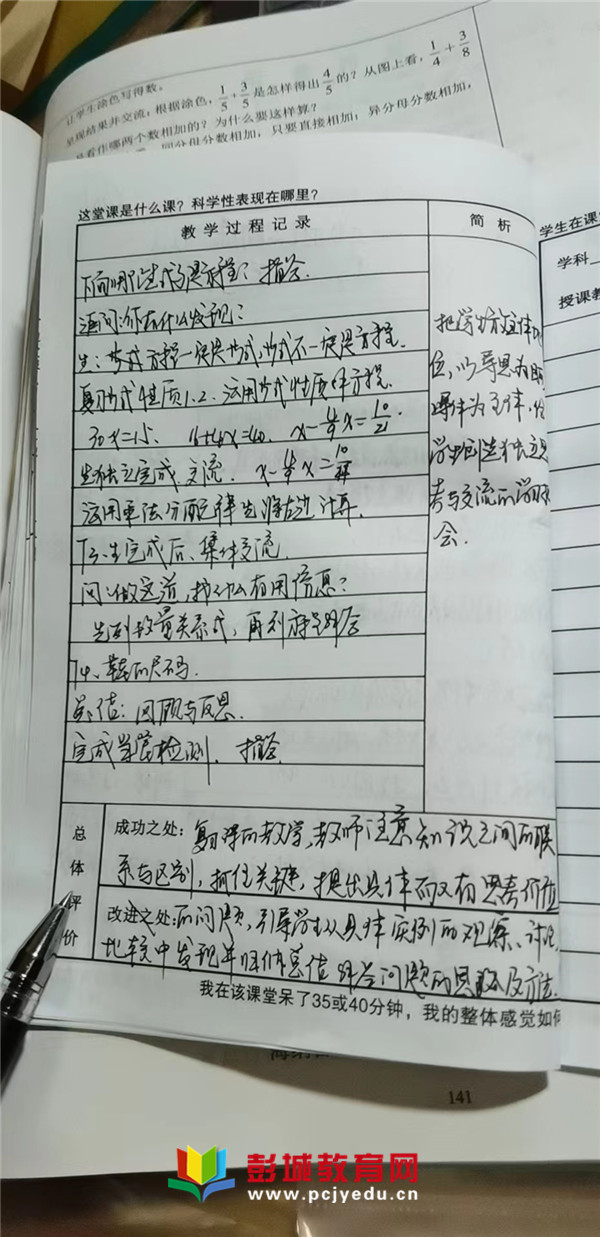 让学生涂色写得数。
呈现结果并交流：根据涂色，1/5+3/5是怎样得出4/5的？从图上看，1/4+3/8
是看作哪两个数相加的？为什么要这样算？
同分母分数相加，只要直接相加；异分母分数相加，
这堂课是什么课？科学性表现在哪里？
教学过程记录
简析
下面哪些式子是方程？指答.
追问：你有什么发现？
生：等式方程一定是等式，等式不一定是方程.
复习等式性质1.2.运用等式性质解方程.
30x=15. x-4/9x=10/21.
生独立完成，交流. x-4/9x=10/
运用乘法分配律先将左边计算.
T3.生完成后、集体交流.
问：做完道，找什么有用信息？
先列数量关系式，再列方程解答
T4、鞋的尺码.
总结：回顾与反思.
完成当堂检测. 指答.
把学生放主体
位，以导思为
体为主体，给
学生创造独立思
考与交流的学习
会.
总体评价
成功之处：复习课的教学，教师注意知识之间的联
系与区别，抓住关键，提出具体而又有思考价值
改进之处：的问题，引导学生从具体实例的观察、讨论、
比较中发现并归纳总结解答问题的思路及方法.
我在该课堂呆了35或40分钟，我的整体感觉如何
学生在课
学科
授课教
141
彭城教育网
www.pcjyedu.cn